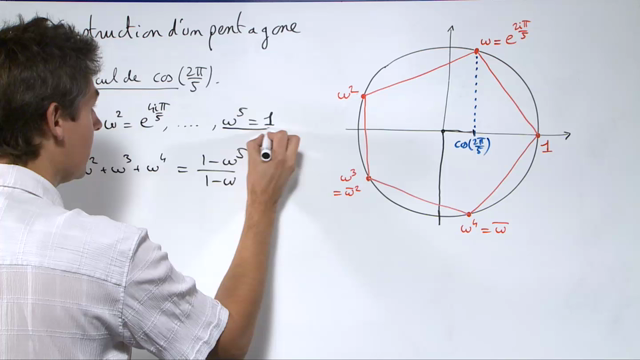 onstruction d'un pentagone
cul de cos(2π/5).
ω² = e^{4iπ/5}, ...., ω⁵ = 1
² + ω³ + ω⁴ = (1-ω⁵)/(1-ω)
ω = e^{2iπ/5}
ω²
cos(2π/5)
1
ω³
= ω̅²
ω⁴ = ω̅